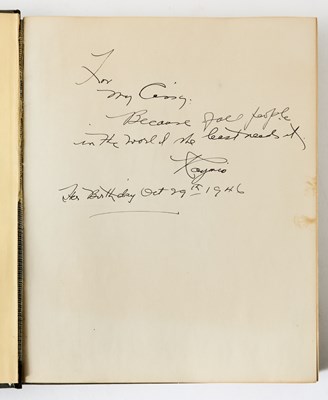 For
my Cissy,
Because of all people
in the world she least needs it
Raymio
Her Birthday Oct 29th 1946